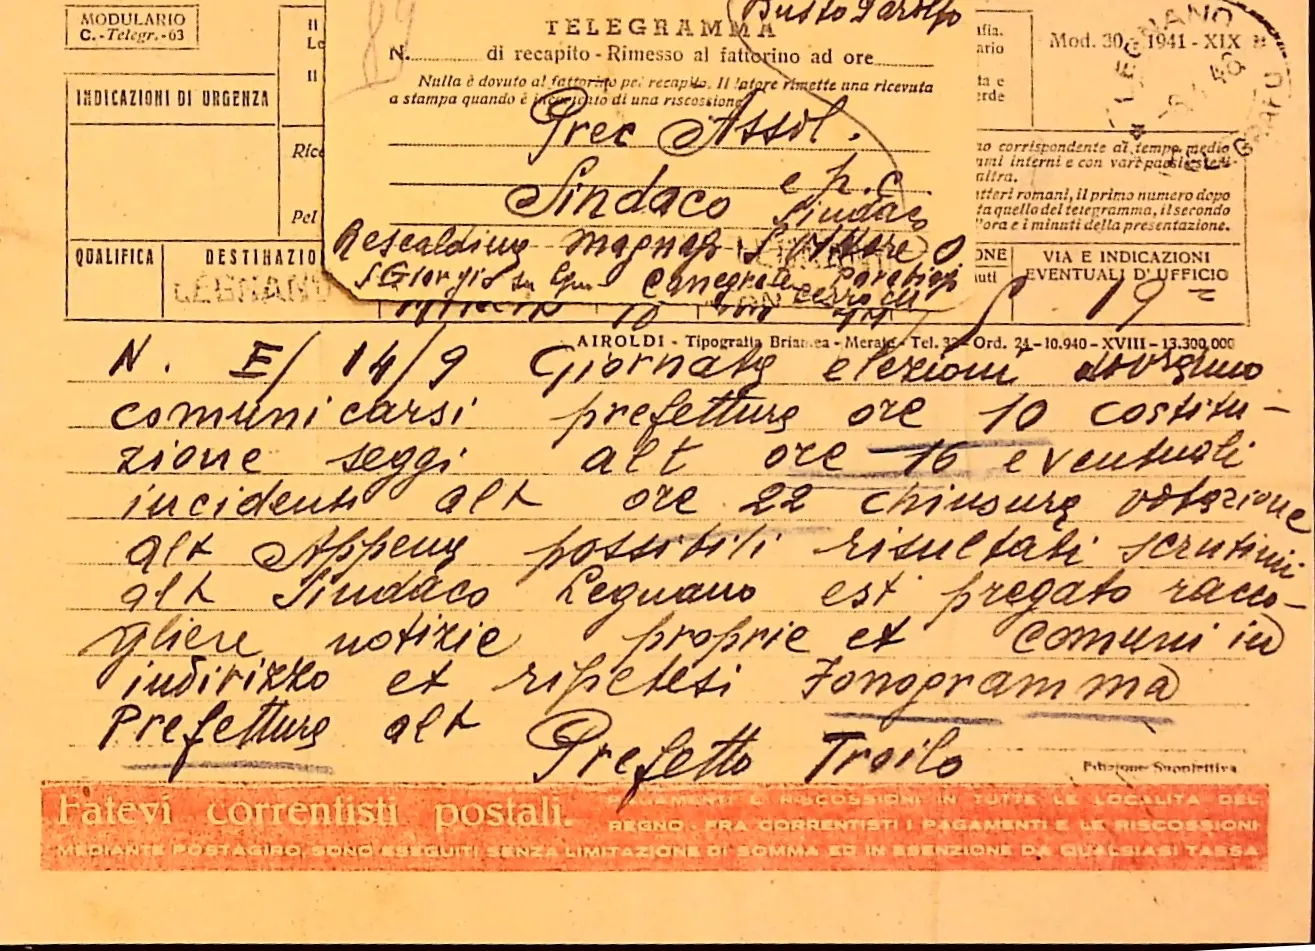 MODULARIO
C. - Telegr. - 63
INDICAZIONI DI URGENZA
Il
Il
Rice
Pel
QUALIFICA
DESTINAZIO
LEGNANO
Busto Garolfo
89
TELEGRAMMA
N. di recapito - Rimesso al fattorino ad ore
Nulla è dovuto al fattorino pel recapito. Il latore rimette una ricevuta
a stampa quando è incaricato di una riscossione
Prec Assol.
e p. c.
Sindaco Sindaco
Rescaldina Magnago S Vittore O
S Giorgio su Legn. Canegrate Parabiago
Cerro M
Milano 10
Mod. 30 - 1941 - XIX
LEGNANO
TELEGRAFO
no corrispondente al tempo medio
altra.
tteri romani, il primo numero dopo
ta quello del telegramma, il secondo
l'ora e i minuti della presentazione.
ONE
VIA E INDICAZIONI
EVENTUALI D'UFFICIO
19
AIROLDI - Tipografia Brianzea - Merate - Tel. 32 - Ord. 24 - 10.940 - XVIII - 13.300.000
N. E/ 14/9 Giornata elezioni dovranno
comunicarsi prefettura ore 10 costitu-
zione seggi alt ore 16 eventuali
incidenti alt ore 22 chiusura votazione
alt Appena possibili risultati scrutini
alt Sindaco Legnano est pregato racco-
gliere notizie proprie et comuni in
indirizzo et ripetesi Fonogramma
Prefettura alt
Prefetto Troilo
Fatevi correntisti postali.
PAGAMENTI E RISCOSSIONI IN TUTTE LE LOCALITÀ DEL
REGNO - FRA CORRENTISTI I PAGAMENTI E LE RISCOSSIONI
MEDIANTE POSTAGIRO, SONO ESEGUITI SENZA LIMITAZIONE DI SOMMA ED IN ESENZIONE DA QUALSIASI TASSA